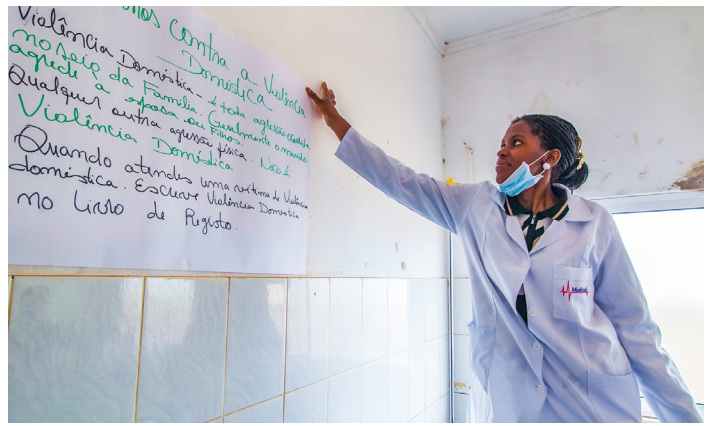 mos contra a Violência
Doméstica
Violência Doméstica - é toda agressão
no seio da Família. Geralmente o marido
agrede a esposa ou Filhos.
Qualquer outra agressão física. Não é
Violência Doméstica
Quando atendes uma vítima de Violência
doméstica. Escreve Violência Doméstica
no Livro de Registo.